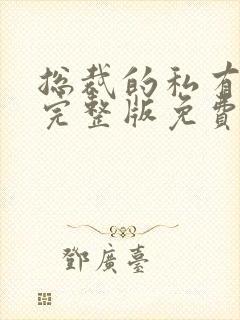 总裁的私有
完整版免費
鄧廣臺